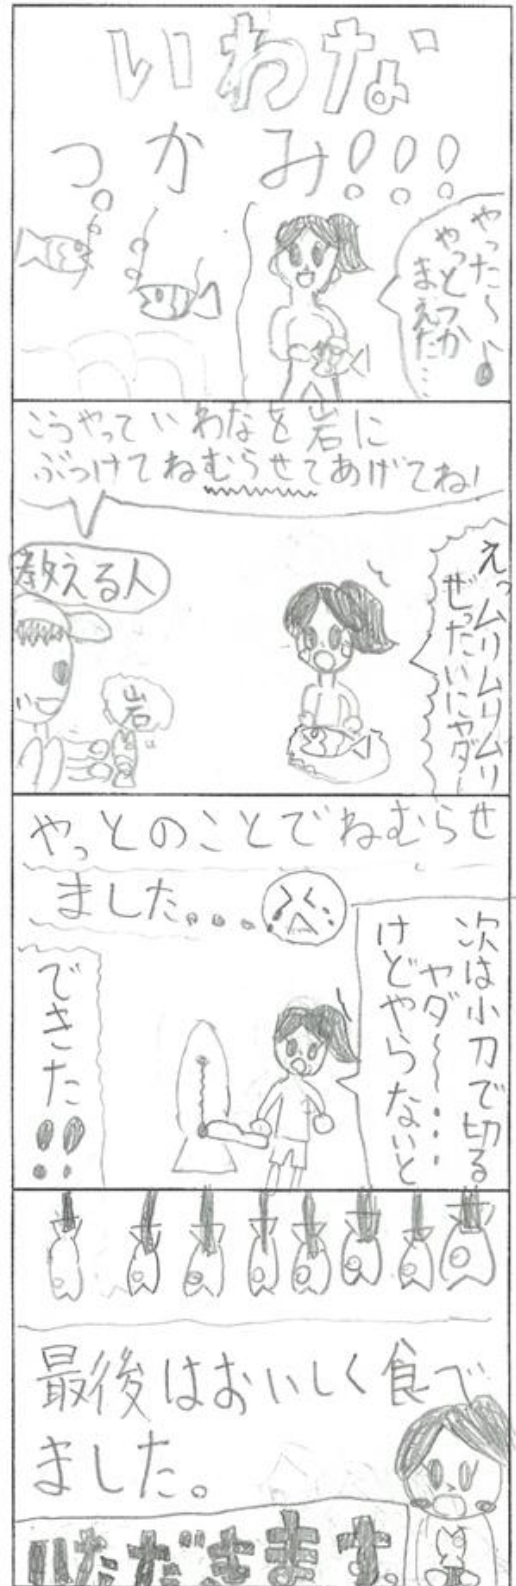 いわな
つかみ!!!
やった〜♪
やっとつか
まえた…
こうやっていわなを岩に
ぶつけてねむらせてあげてね!
教える人
岩
えっムリムリムリ
ぜったいにヤダ
やっとのことでねむらせ
ました。。...
次は小刀で切る
ヤダ〜〜...
けどやらないと
できた!!
最後はおいしく食べ
ました。
いただきます。